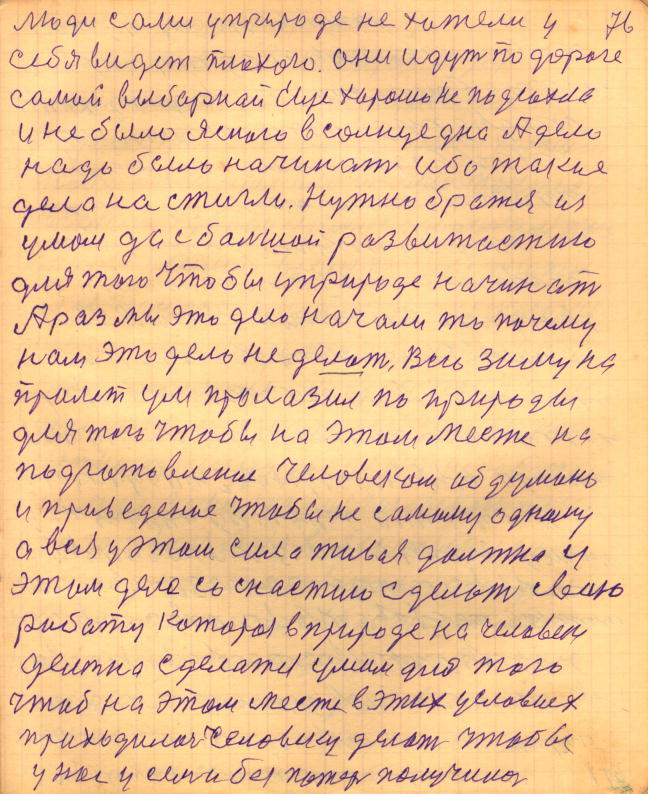 люди сами у природе не хотели у 76
себя видет плохого. они идут по дороге
самой выборнай Еще хорошо не подсохла
и не было ясного в солнце дна А дело
надо было начинат ибо такие
дела настигли. Нужно братся из
умом да с балшой развитастию
для того чтобы у природе начинат
А раз мы это дело начали то почему
нам это дело не делат. Всю зиму на
пролет ум пролазил по природы
для того чтобы на этом месте на
подготовление человеком обдумано
и приведение чтобы не самому одному
а вся у этом сила живая должна у
этом дела со снастию сделат свою
работу которая в природе на человеку
должна сделатся умом для того
чтоб на этом месте в этих условиех
приходилос человеку делат чтобы
у нас у семи без потер получился